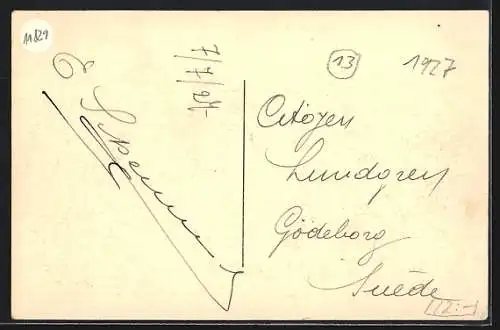 11829
7/7/27
13
1927
Citoyen
Lundgren
Gödeborg
Suède
12.-